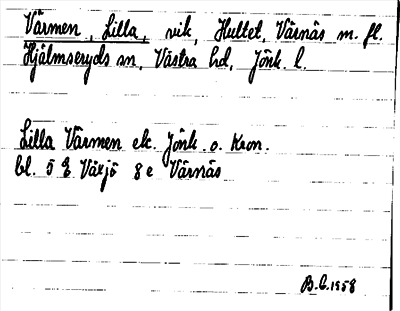 Värmen, Lilla, vik, Hultet, Värnäs m. fl.
Hjälmseryds sn, Västra hd, Jönk. l.
Lilla Värmen ek. Jönk. o. Kron.
bl. 5 E Växjö 8 e Värnäs
B.C. 1958